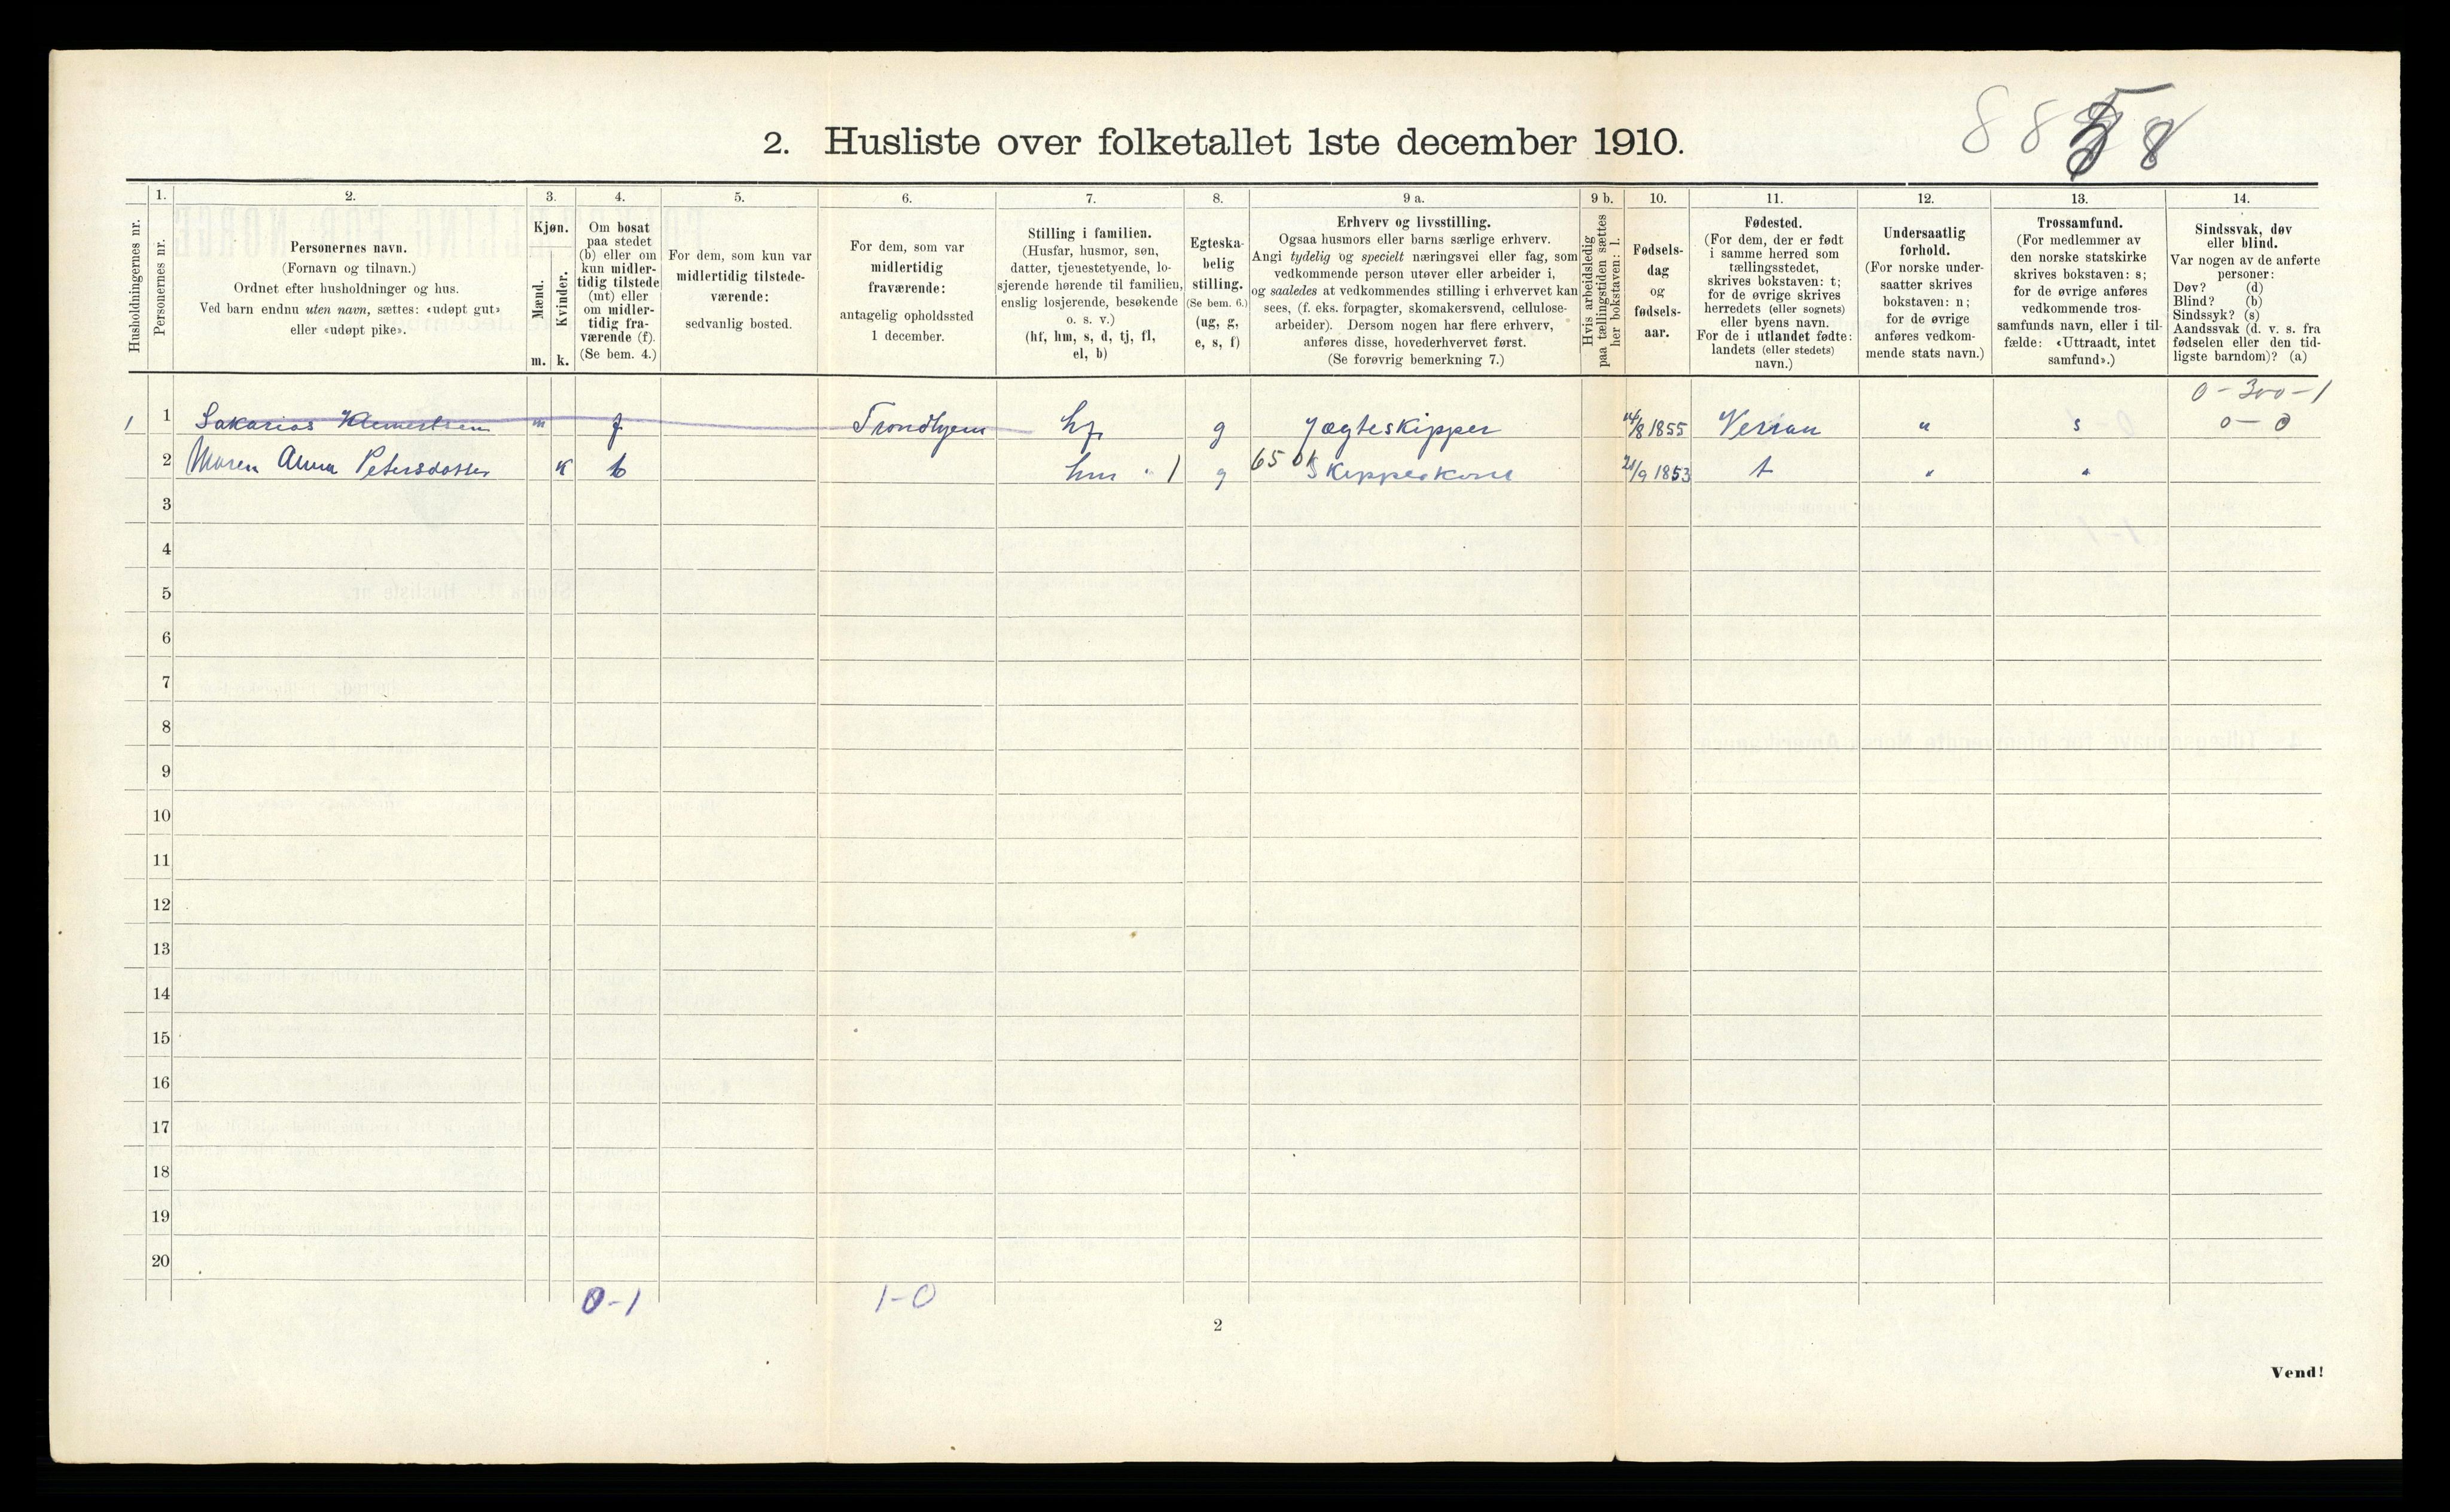 2. Husliste over folketallet 1ste december 1910.
88
Husholdningernes nr.
1.
Personernes nr.
2.
Personernes navn.
(Fornavn og tilnavn.)
Ordnet efter husholdninger og hus.
Ved barn endnu uten navn, sættes: «udøpt gut»
eller «udøpt pike».
3.
Kjøn.
Mænd.
m.
Kvinder.
k.
4.
Om bosat
paa stedet
(b) eller om
kun midler-
tidig tilstede
(mt) eller
om midler-
tidig fra-
værende (f).
(Se bem. 4.)
5.
For dem, som kun var
midlertidig tilstede-
værende:
sedvanlig bosted.
6.
For dem, som var
midlertidig
fraværende:
antagelig opholdssted
1 december.
7.
Stilling i familien.
(Husfar, husmor, søn,
datter, tjenestetyende, lo-
sjerende hørende til familien,
enslig losjerende, besøkende
o. s. v.)
(hf, hm, s, d, tj, fl,
el, b)
8.
Egteska-
belig
stilling.
(Se bem. 6.)
(ug, g,
e, s, f)
9 a.
Erhverv og livsstilling.
Ogsaa husmors eller barns særlige erhverv.
Angi tydelig og specielt næringsvei eller fag, som
vedkommende person utøver eller arbeider i,
og saaledes at vedkommendes stilling i erhvervet kan
sees, (f. eks. forpagter, skomakersvend, cellulose-
arbeider). Dersom nogen har flere erhverv,
anføres disse, hovederhvervet først.
(Se forøvrig bemerkning 7.)
9 b.
Hvis arbeidsledig
paa tællingstiden sættes
her bokstaven: l.
10.
Fødsels-
dag
og
fødsels-
aar.
11.
Fødested.
(For dem, der er født
i samme herred som
tællingsstedet,
skrives bokstaven: t;
for de øvrige skrives
herredets (eller sognets)
eller byens navn.
For de i utlandet fødte:
landets (eller stedets)
navn.)
12.
Undersaatlig
forhold.
(For norske under-
saatter skrives
bokstaven: n;
for de øvrige
anføres vedkom-
mende stats navn.)
13.
Trossamfund.
(For medlemmer av
den norske statskirke
skrives bokstaven: s;
for de øvrige anføres
vedkommende tros-
samfunds navn, eller i til-
fælde: «Uttraadt, intet
samfund».)
14.
Sindssvak, døv
eller blind.
Var nogen av de anførte
personer:
Døv? (d)
Blind? (b)
Sindssyk? (s)
Aandssvak (d. v. s. fra
fødselen eller den tid-
ligste barndom)? (a)
0-300-1
1 1 Sakarias Klemertsen m f Trondhjem hf g Jægteskipper 14/8 1855 Verran n s 0-0
2 Maren Anna Petersdatter k b hm " 1 g 6501 Skipperkone 21/9 1853 t " "
3
4
5
6
7
8
9
10
11
12
13
14
15
16
17
18
19
20
0-1 1-0
2
Vend!